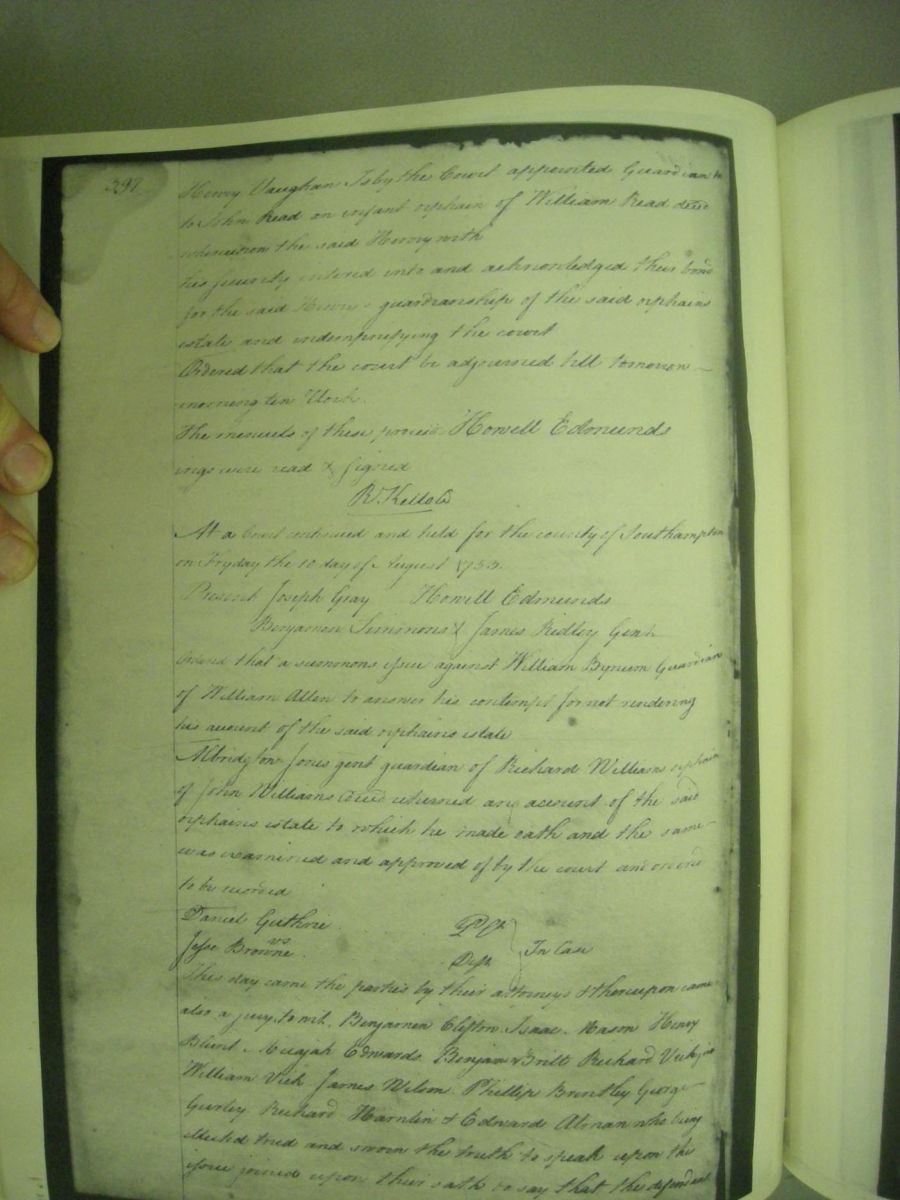 397
Henry Vaughan Is by the Court appointed Guardian to
to John Read an infant orphain of William Read decd
whereupon the said Henry with
his security entered into and acknowledged their bond
for the said Henrys guardianship of the said orphains
estate and indemnifying the court
Ordered that the court be adjourned till tomorrow
morning ten Clock.
The menuets of these proceed Howell Edmunds
ings were read & signed
R Kello
At a Court continued and held for the county of Southampton
on Fryday the 10 day of August
Present Joseph Gray Howell Edmunds
Benjamin Simmons & James Ridley Gent
Ordered that a summons issue against William Bynum Guardian
of William Allen to answer his contempt for not rendering
his account of the said orphains estate
Albridgton Jones gent guardian of Richard Williams orphain
of John Williams decd returned an account of the said
orphains estate to which he made oath and the same
was examined and approved of by the court and orderd
to be recorded
Daniel Guthrie Plt
vs
Jesse Browne Deft In Case
This day came the parties by their attorneys & thereupon came
also a jury to wit, Benjamin Clifton Isaac Mason Henry
Blunt Micajah Edwards Benjamin Britt Richard Vick
William Vick James Wilson Phillip Brantley George
Gurley Richard Hamlin & Edward who being
elected tried and sworn the truth to speak upon the
issue joined upon their oath to say that the defendant